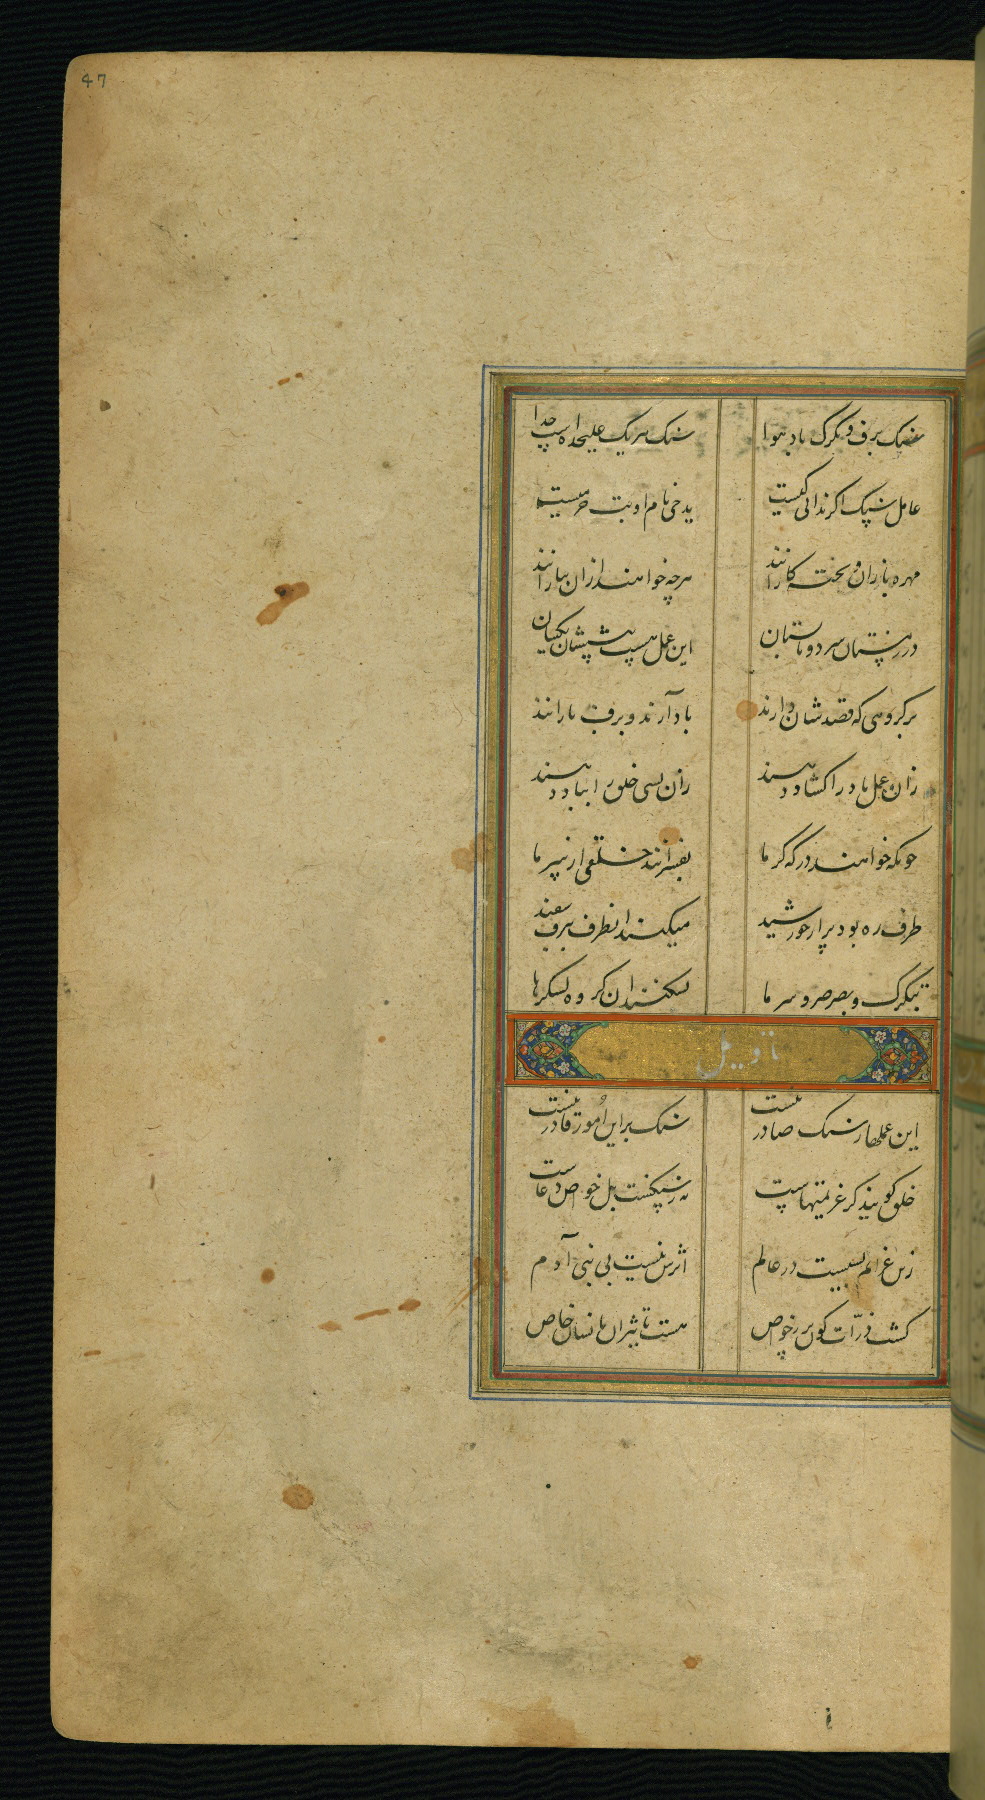 47
سنک برف و تکرک باد هوا سنک هر یک علیحده است جدا
عامل سنک اکر ندانی کیست یدخی نام او بت
مهره بازان کارا نند هرچه خواهند ازان ببارانند
در زمستان سرد و تابستان این عمل هست پیششان یکسان
بر کروهی که قصدشان دارند باد آرند و برف بارانند
زان عمل باد را کشاد دهند زان بسی خلق را بباد دهند
چونکه خواهند در که کرما بفسرانند خلقی از سرما
طرف ره بود پر از خورشید میکنند انطرف ببرف سفید
بتکرک و بصرصر و سرما بشکنند ان کروه لشکرها
تاویل
این عملها ز سنک صادر نیست سنک بر این امور قادر نیست
خلق کویند کز عزیمتهاست نه ز سنکست بل خواص دعاست
زین عزایم بسیست در عالم اثرش نیست بی بنی آدم
کشت ذرات کون پر ز خواص هست تاثیر ان بانسان خاص